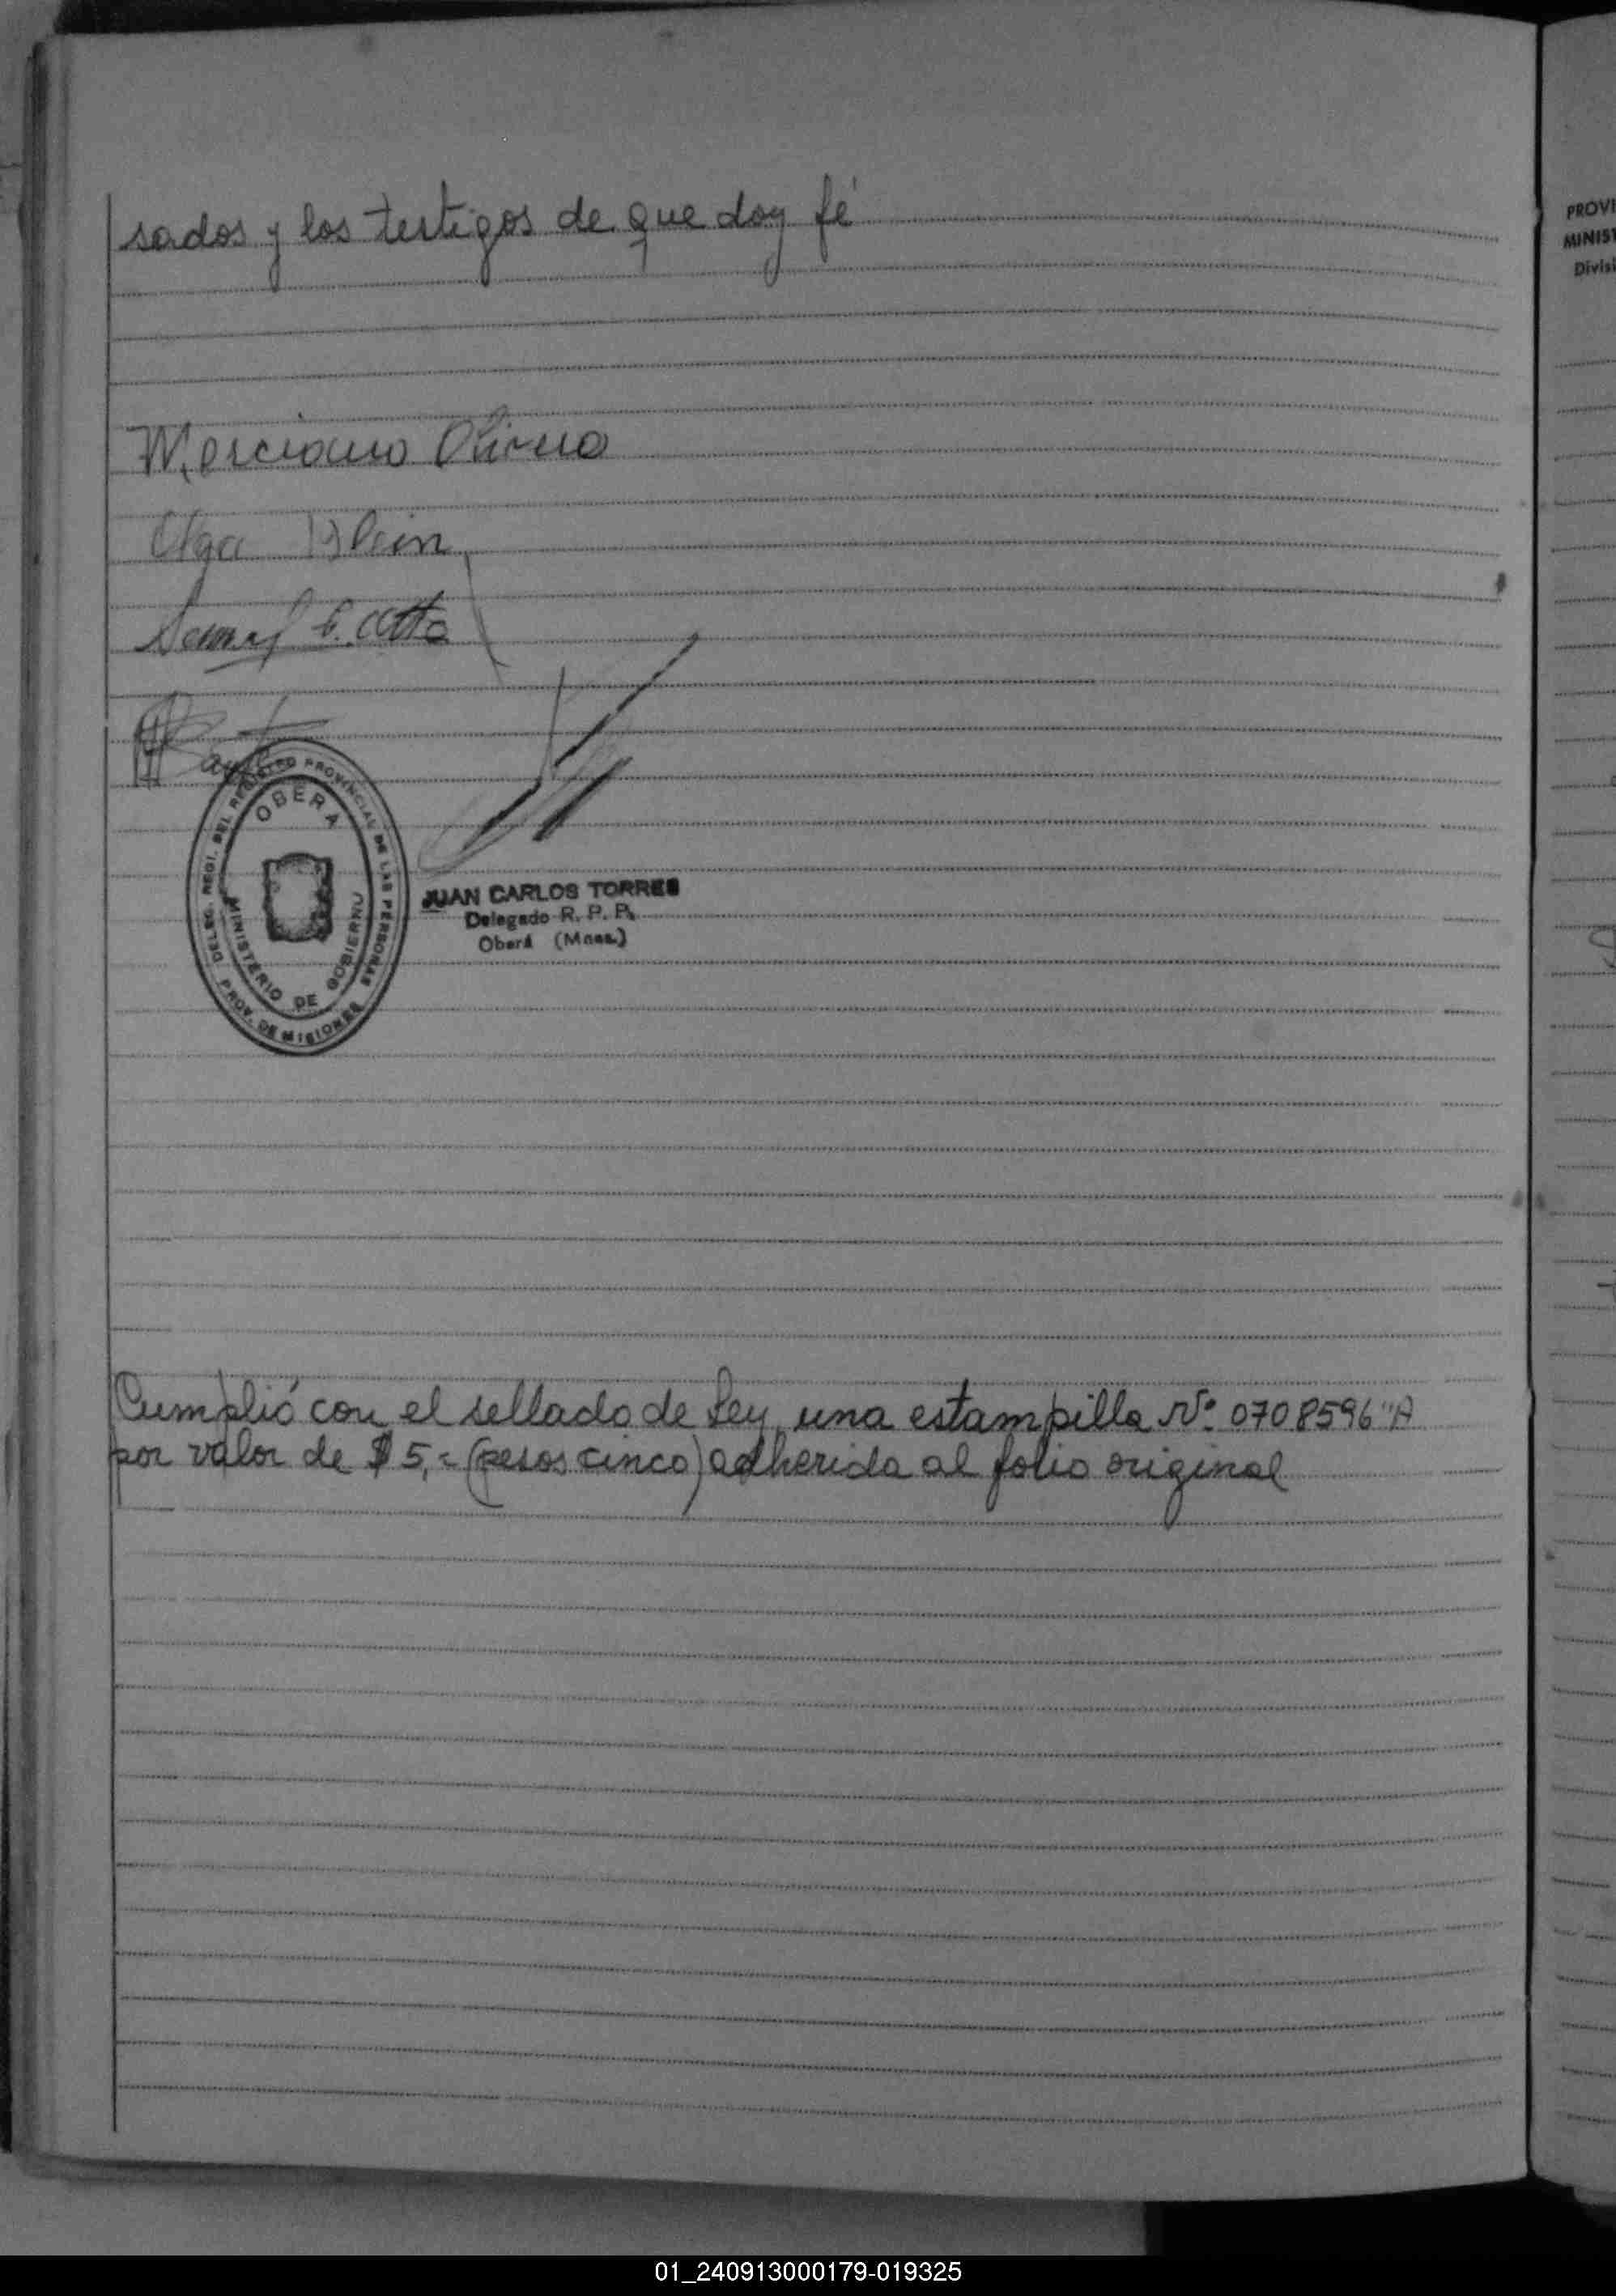 sados y los testigos de que doy fé
Marciano Olivera
Olga Klein
OBERA
MINISTERIO DE GOBIERNO
DELEG. REGI. DEL REGISTRO PROVINCIAL DE LAS PERSONAS
PROV. DE MISIONES
JUAN CARLOS TORRES
Delegado R. P. P.
Oberá (Mnes.)
Cumplió con el sellado de Ley, una estampilla Nº 0708596 "A
por valor de $ 5,= (pesos cinco) adherida al folio original
PROVI
MINIST
Divisi
01_240913000179-019325